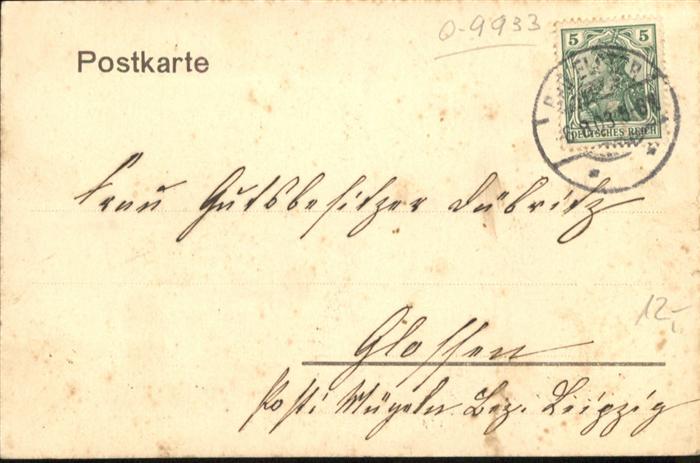 O-9933
Postkarte
5 5
DEUTSCHES REICH
Frau Gutsbesitzer Däbritz
12,-
Glossen
Post: Mügeln Bez. Leipzig